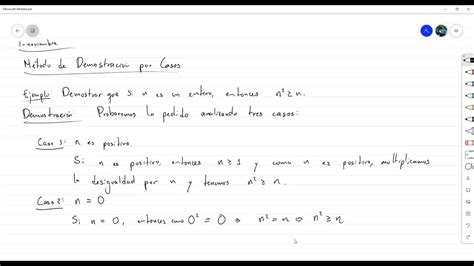 Microsoft Whiteboard
1-noviembre
Método de Demostración por Casos
Ejemplo: Demostrar que si n es un entero, entonces n² ≥ n.
Demostración: Probaremos lo pedido analizando tres casos:
Caso 1: n es positivo.
Si n es positivo, entonces n ≥ 1 y como n es positivo, multiplicamos
la desigualdad por n y tenemos n² ≥ n.
Caso 2: n = 0
Si n = 0, entonces como 0² = 0 ⇒ n² = n ⇒ n² ≥ n